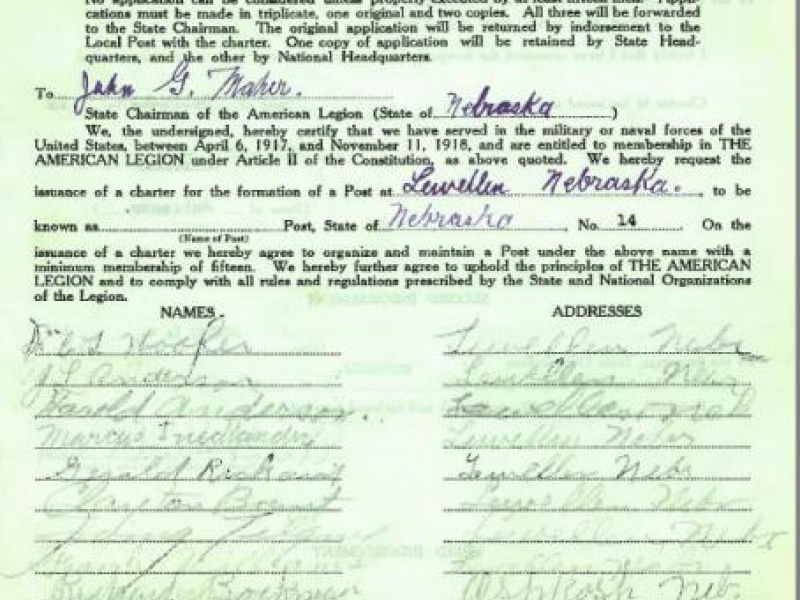 No application can be considered unless properly executed by at least fifteen men. Appli-
cations must be made in triplicate, one original and two copies. All three will be forwarded
to the State Chairman. The original application will be returned by indorsement to the
Local Post with the charter. One copy of application will be retained by State Head-
quarters, and the other by National Headquarters.
To John G. Maher.
State Chairman of the American Legion (State of Nebraska )
We, the undersigned, hereby certify that we have served in the military or naval forces of the
United States, between April 6, 1917, and November 11, 1918, and are entitled to membership in THE
AMERICAN LEGION under Article II of the Constitution, as above quoted. We hereby request the
issuance of a charter for the formation of a Post at Lewellen Nebraska. , to be
known as Post, State of Nebraska , No. 14 . On the
(Name of Post)
issuance of a charter we hereby agree to organize and maintain a Post under the above name with a
minimum membership of fifteen. We hereby further agree to uphold the principles of THE AMERICAN
LEGION and to comply with all rules and regulations prescribed by the State and National Organizations
of the Legion.
NAMES. ADDRESSES
Lewellen Nebr
J L Anderson Lewellen Nebr
Harold Anderson. Lewellen Neb
Marcus Lewellen Nebr
Gerald Lewellen Nebr
Clayton Lewellen Nebr
Lewellen Nebr
Oshkosh Neb